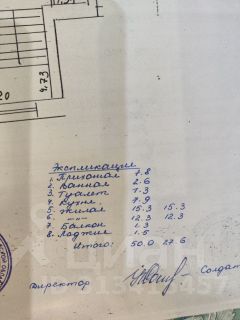 4.73
20
Экспликация
1. Прихожая 7.8
2. Ванная 2.6
3. Туалет 1.3
4. Кухня 7.9
5. Жилая 15.3 15.3
6. —"— 12.3 12.3
7. Балкон 1.3
8. Лоджия 1.5
Итого: 50.0 27.6
Директор
Солдат